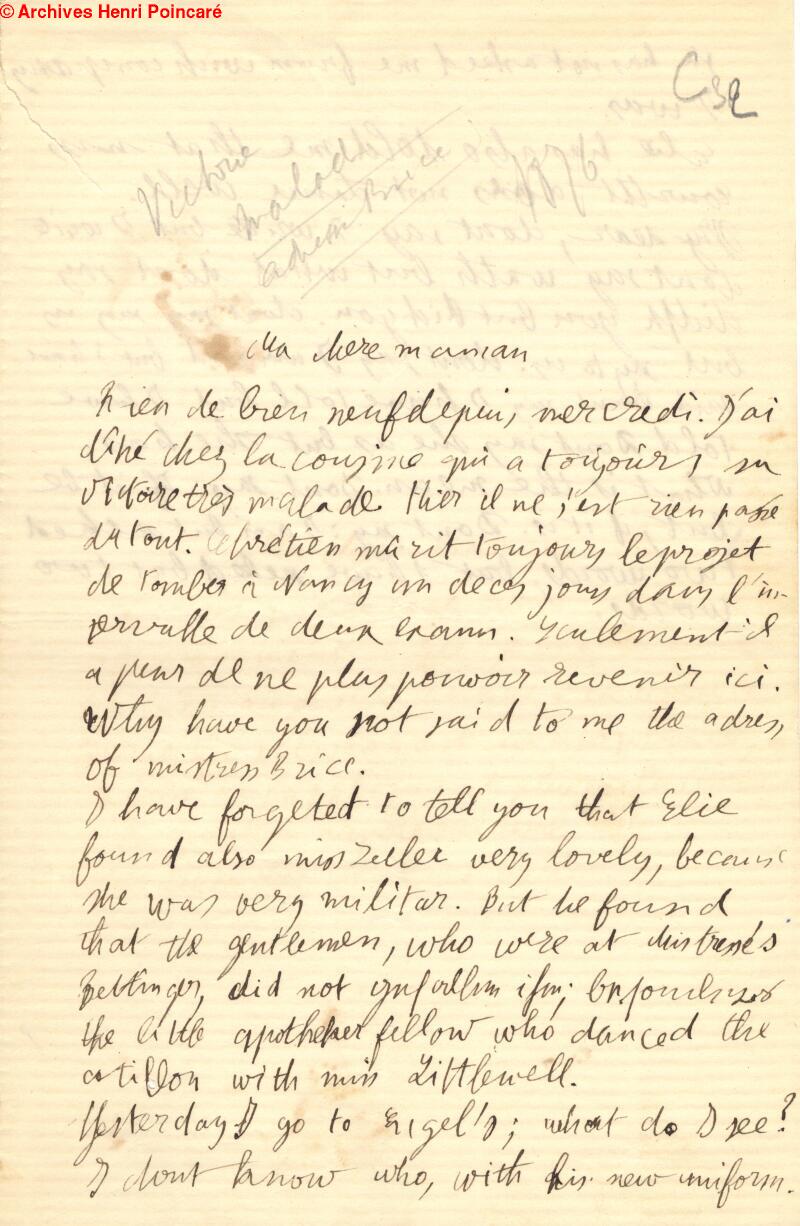 © Archives Henri Poincaré
C 32
Victoire
malade
adresse Brice
1876
Ma chère maman
Rien de bien neuf depuis mercredi. J'ai
dîné chez la cousine qui a toujours sa
Victoire très malade Hier il ne s'est rien passé
du tout. Lechrétien mûrit toujours le projet
de tomber à Nancy un de ces jours dans l'in-
tervalle de deux exams. Seulement il
a peur de ne plus pouvoir revenir ici.
Why have you not said to me the adress
of mistress Brice.
I have forgeted to tell you that Elie
found also miss Zeller very lovely, because
she was very militar. But he found
that the gentlemen, who were at mistress's
Bettinger, did not
the little apotheker fellow who danced the
cotillon with miss Littlewell.
Yesterday I go to Eigel's; what do I see?
I dont know who, with his new uniform.